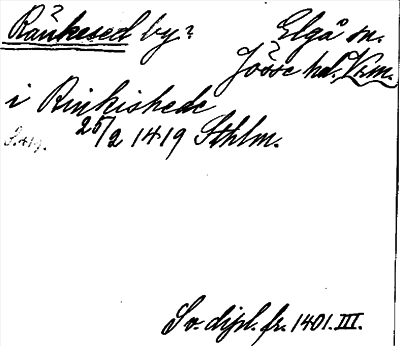 Ränkesed by? Elgå sn.
Jösse hd, Vrm.
i Rinkishede
25/2 1419 Sthlm.
S. 419.
Sv. dipl. fr. 1401. III.